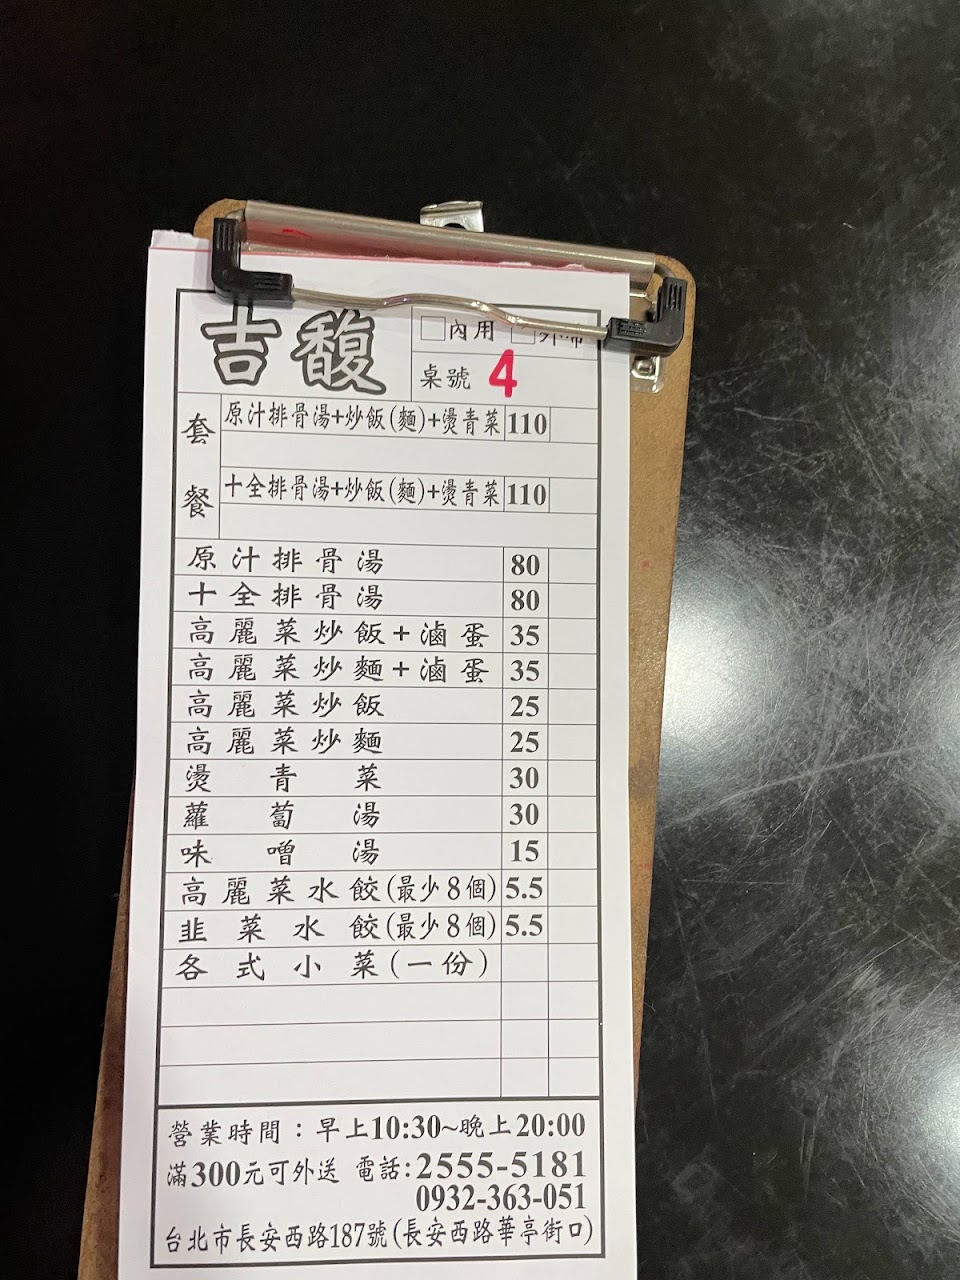 吉馥
□內用 □外帶
桌號 4
套餐
原汁排骨湯+炒飯(麵)+燙青菜 110
十全排骨湯+炒飯(麵)+燙青菜 110
原汁排骨湯 80
十全排骨湯 80
高麗菜炒飯+滷蛋 35
高麗菜炒麵+滷蛋 35
高麗菜炒飯 25
高麗菜炒麵 25
燙青菜 30
蘿蔔湯 30
味噌湯 15
高麗菜水餃(最少8個) 5.5
韭菜水餃(最少8個) 5.5
各式小菜(一份)
營業時間：早上10:30~晚上20:00
滿300元可外送 電話:2555-5181
0932-363-051
台北市長安西路187號(長安西路華亭街口)